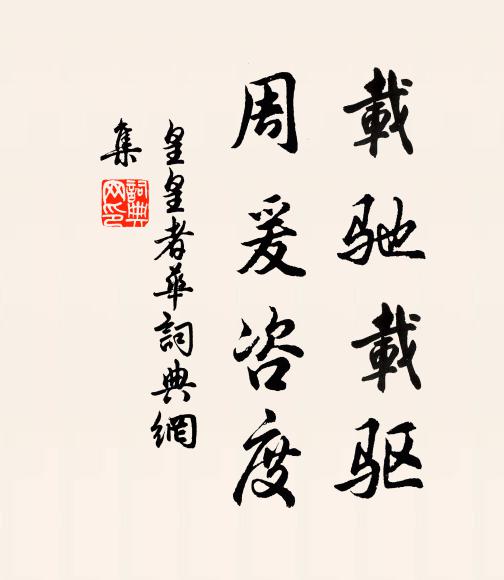 載驰載驱
周爰咨度
皇皇者華詞典網
集
詞典
网印